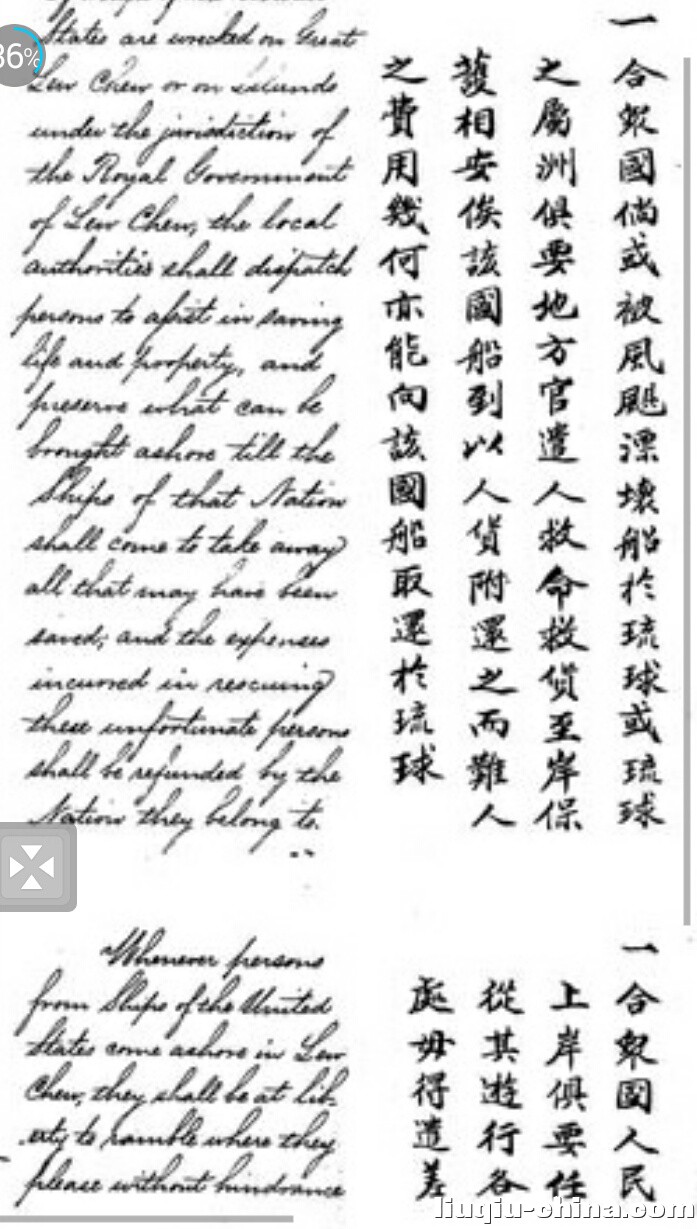 States are wrecked on Great
Lew Chew or on islands
under the jurisdiction of
the Royal Government
of Lew Chew, the local
authorities shall dispatch
persons to assist in saving
life and property, and
preserve what can be
brought ashore till the
Ships of that Nation
shall come to take away
all that may have been
saved; and the expenses
incurred in rescuing
these unfortunate persons
shall be refunded by the
Nation they belong to.
一
合衆國倘或被風颶漂壞船於琉球或琉球
之屬洲俱要地方官遣人救命救貨至岸保
護相安俟該國船到以人貨附還之而難人
之費用幾何亦能向該國船取還於琉球
Whenever persons
from Ships of the United
States come ashore in Lew
Chew, they shall be at lib-
erty to ramble where they
please without hindrance
一
合衆國人民
上岸俱要任
從其遊行各
處毋得遣差
86%
liuqiu-china.com